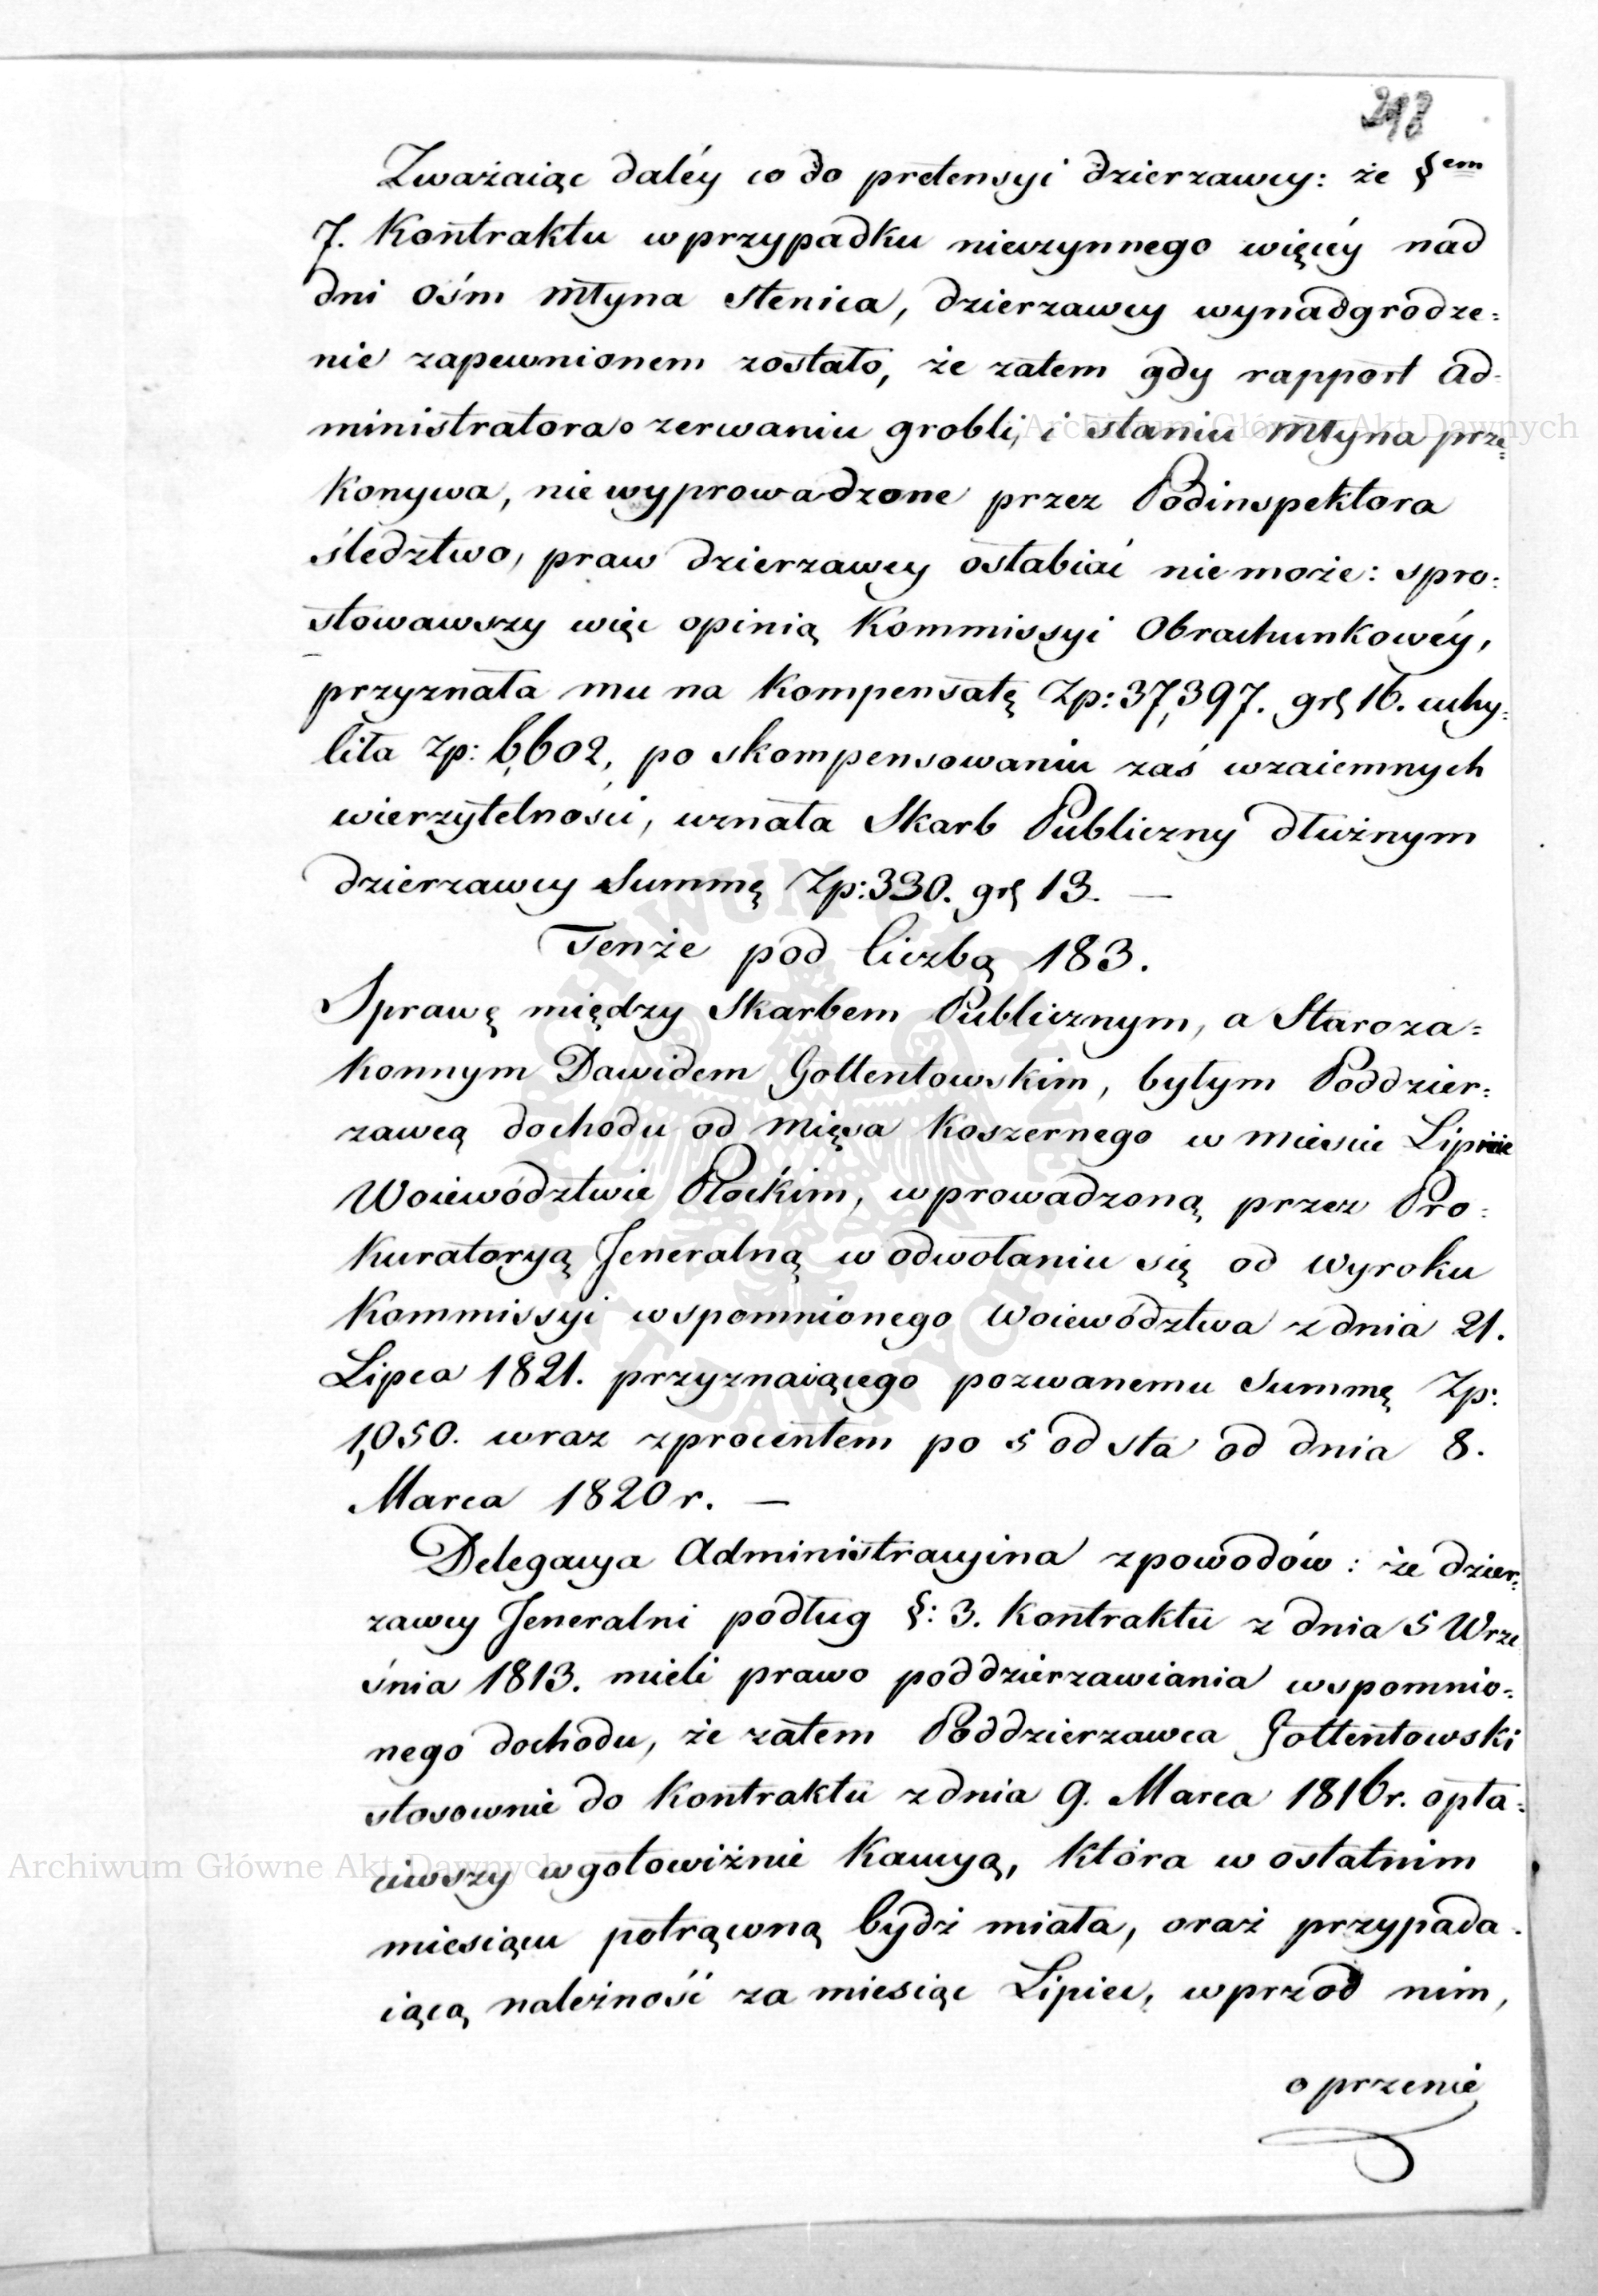 298
Zważaiąc daléy co do pretensyi dzierzawcy: że §em
7. Kontraktu w przypadku nieczynnego więcéy nad
dni ośm Młyna Stenica, dzierzawcy wynadgrodze=
nie zapewnionem zostało, że zatem gdy rapport Ad=
ministratora o zerwaniu grobli, i staniu Młyna prze=
konywa, nie wyprowadzone przez Podinspektora
śledztwo, praw dzierzawcy osłabiać nie może: spro=
stowawszy więc opinią Kommissyi Obrachunkowéy,
przyznała mu na kompensatę Zp: 37,397. gr 16. uchy=
liła Zp: 6,602, po skompensowaniu zaś wzaiemnych
wierzytelności, uznała Skarb Publiczny dłużnym
dzierzawcy Summę Zp: 330. gr 13. —
Tenże pod liczbą 183.
Sprawę między Skarbem Publicznym, a Staroza=
konnym Dawidem Gottentowskim, byłym Poddzier=
zawcą dochodu od mięsa koszernego w mieście Lipnie
Woiewództwie Płockim, wprowadzoną przez Pro=
kuratoryą Jeneralną w odwołaniu się od wyroku
Kommissyi wspomnionego Woiewództwa z dnia 21.
Lipca 1821. przyznaiącego pozwanemu Summę Zp:
1,050. wraz z procentem po 5 od sta od dnia 8.
Marca 1820 r. —
Delegacya Administracyina z powodów: że dzier=
zawcy Jeneralni podług §: 3. Kontraktu z dnia 5 Wrze
śnia 1813. mieli prawo poddzierzawiania wspomnio=
nego dochodu, że zatem Poddzierzawca Gottentowski
stosownie do Kontraktu z dnia 9. Marca 1816 r. opła=
ciwszy w gotowiźnie Kaucyą, która w ostatnim
miesiącu potrąconą bydź miała, oraz przypada=
iącą należność za miesiąc Lipiec, wprzód nim,
o przenie
Archiwum Główne Akt Dawnych
Archiwum Główne Akt Dawnych